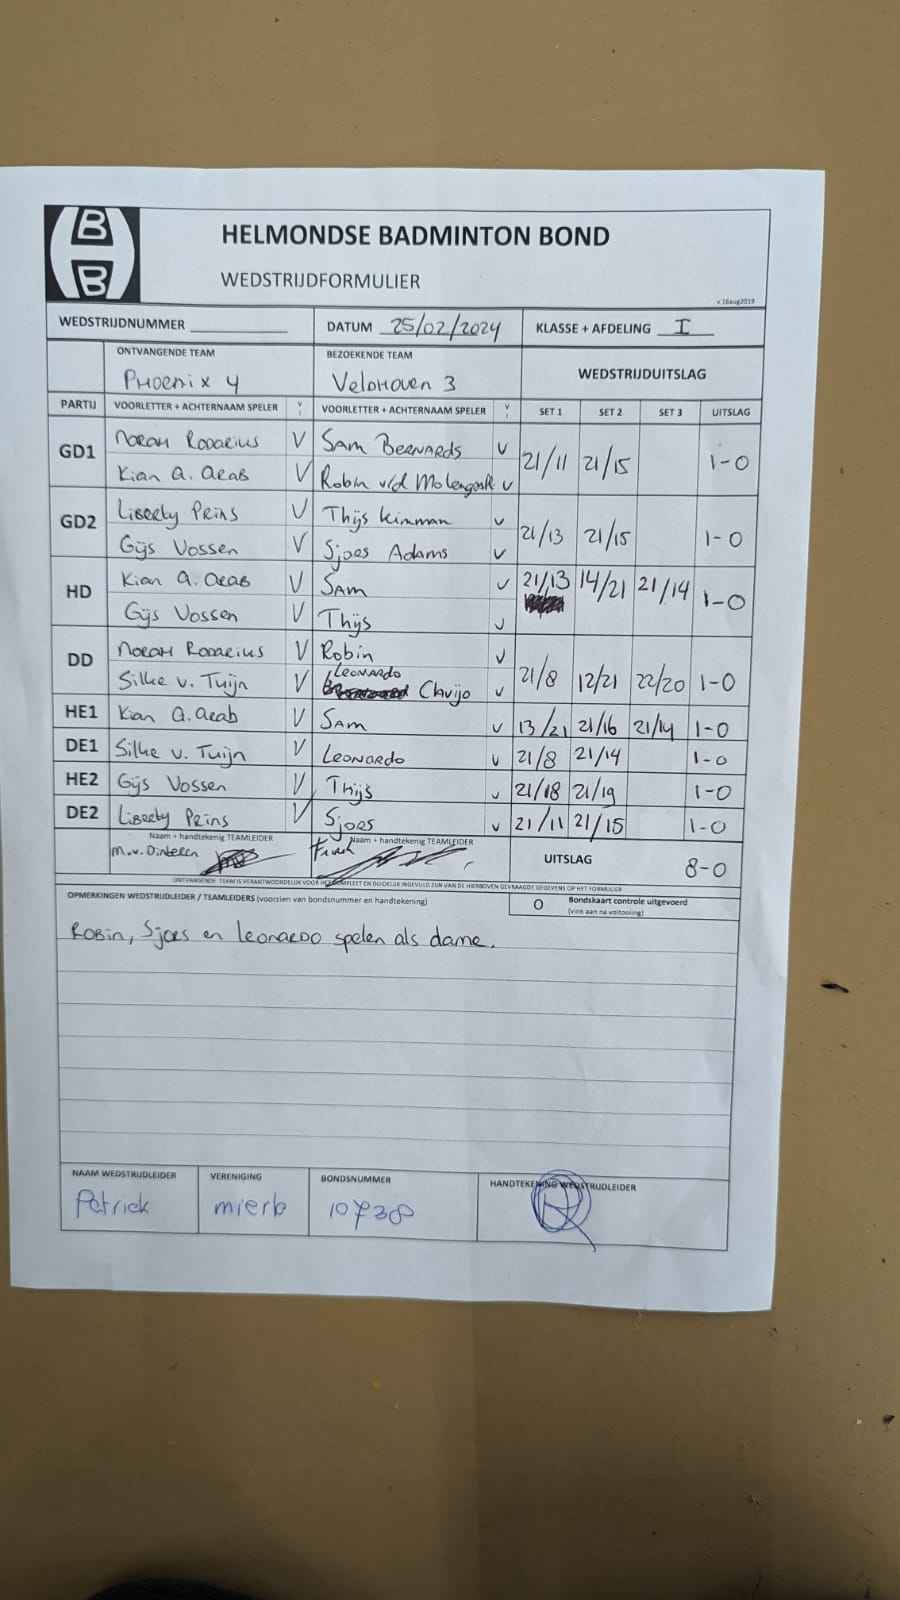 B
B
HELMONDSE BADMINTON BOND
WEDSTRIJDFORMULIER
v.16aug2019
WEDSTRIJDNUMMER DATUM 25/02/2024 KLASSE + AFDELING I
ONTVANGENDE TEAM BEZOEKENDE TEAM WEDSTRIJDUITSLAG
Phoenix 4 Veldhoven 3
PARTIJ VOORLETTER + ACHTERNAAM SPELER V VOORLETTER + ACHTERNAAM SPELER V SET 1 SET 2 SET 3 UITSLAG
GD1 Norah Rodarius V Sam Bernards V 21/11 21/15 1-0
Kian A. Arab V Robin v/d V
GD2 Liberty Prins V Thijs Kinman V 21/13 21/15 1-0
Gijs Vossen V Sjors Adams V
HD Kian A. Arab V Sam V 21/13 14/21 21/14 1-0
Gijs Vossen V Thijs V
DD Norah Rodarius V Robin V 21/8 12/21 22/20 1-0
Silke v. Tuijn V Leonardo Chuijo V
HE1 Kian A. Arab V Sam V 13/21 21/16 21/14 1-0
DE1 Silke v. Tuijn V Leonardo V 21/8 21/14 1-0
HE2 Gijs Vossen V Thijs V 21/18 21/19 1-0
DE2 Liberty Prins V Sjors V 21/11 21/15 1-0
Naam + handtekenig TEAMLEIDER Naam + handtekenig TEAMLEIDER UITSLAG 8-0
M.v.Dinteren
ONTVANGENDE TEAM IS VERANTWOORDELIJK VOOR HET COMPLEET EN DUIDELIJK INGEVULD ZIJN VAN DE HIERBOVEN GEVRAAGDE GEGEVENS OP HET FORMULIER
OPMERKINGEN WEDSTRIJDLEIDER / TEAMLEIDERS (voorzien van bondsnummer en handtekening) O Bondskaart controle uitgevoerd
(vink aan na voltooiing)
Robin, Sjors en Leonardo spelen als dame.
NAAM WEDSTRIJDLEIDER VERENIGING BONDSNUMMER HANDTEKENING WEDSTRIJDLEIDER
Patrick mierlo 107738